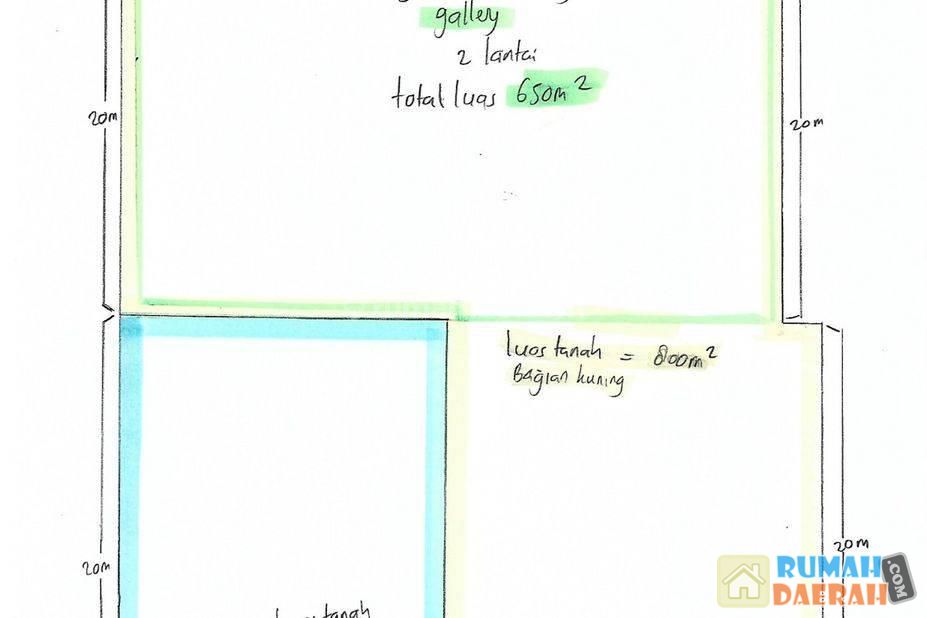 galley
2 lantai
total luas 650m²
20m
20m
luas tanah = 800m²
Bagian kuning
20m
20m
tanah
RUMAH
DAERAH
.COM